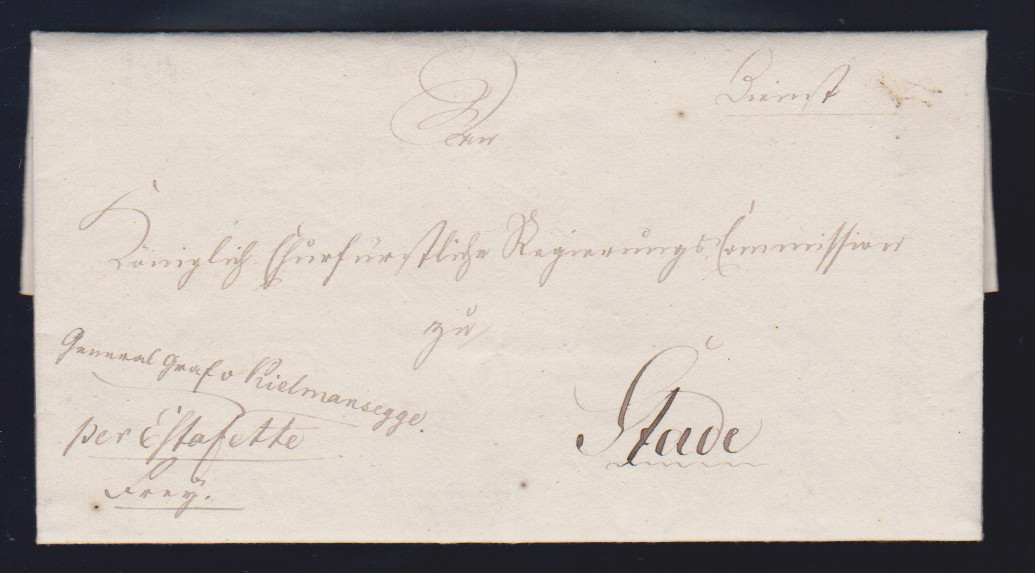 Dienst
Der
Königlich Churfürstliche Regierungs Commission
zu
Stade
General Graf v Kielmansegge.
per Estafette
Frey.